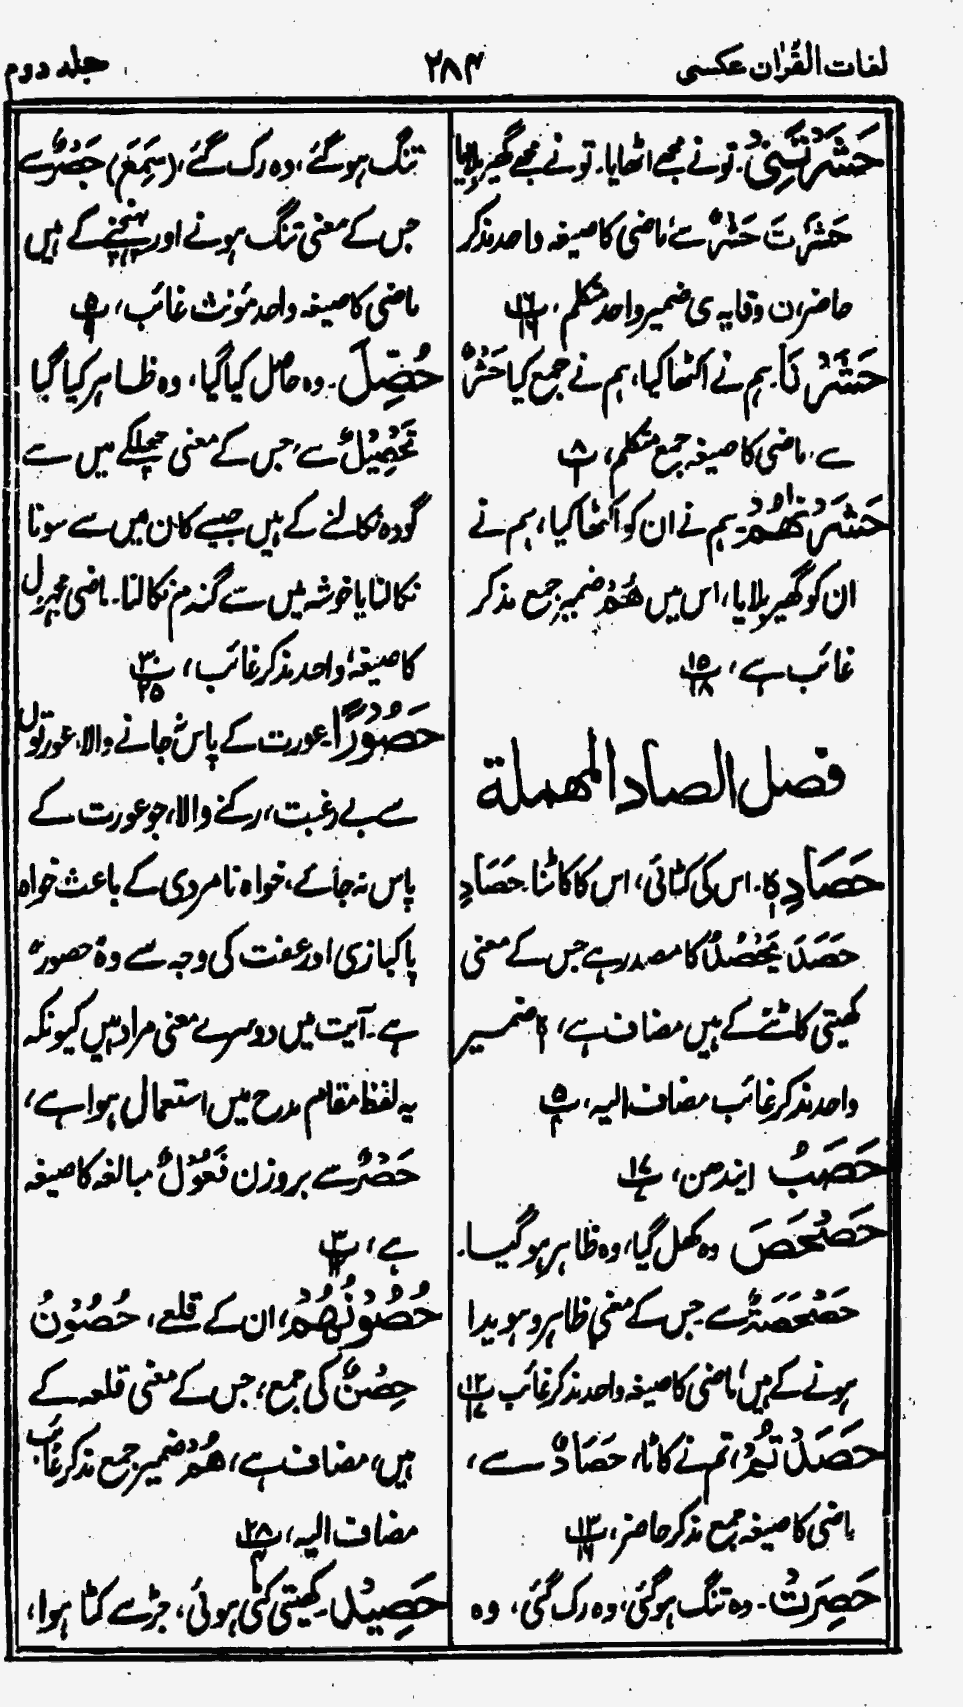 لغات القُرٰان عکسی
۲۸۴
جلد دوم
حَشَرْتَنِیْ۔ تو نے مجھے اٹھایا۔ تو نے مجھے گھیر بلایا
حَشَرْتَ حَشْرٌ سے ماضی کا صیغہ واحد مذکر
حاضر، ن وقایہ ی ضمیر واحد متکلم، پ۱۶
حَشَرْنَا۔ ہم نے اکٹھا کیا، ہم نے جمع کیا حَشْرٌ
سے، ماضی کا صیغہ جمع متکلم، پ۸
حَشَرْنٰهُمْ۔ ہم نے ان کو اکٹھا کیا، ہم نے
ان کو گھیر بلایا، اس میں هُمْ ضمیر جمع مذکر
غائب ہے، پ۱۵/۱۸
فصل الصاد المهملة
حَصَادِہٖ۔ اس کی کٹائی، اس کا کاٹنا۔ حَصَادِ
حَصَدَ یَحْصُدُ کا مصدر ہے جس کے معنی
کھیتی کاٹنے کے ہیں مضاف ہے، ہٖ ضمیر
واحد مذکر غائب مضاف الیہ، پ
حَصَبُ ایندھن، پ۱۷
حَصْحَصَ وہ کھل گیا، وہ ظاہر ہو گیا۔
حَصْحَصَةٌ سے جس کے معنی ظاہر و ہویدا
ہونے کے ہیں، ماضی کا صیغہ واحد مذکر غائب پ۱۲
حَصَدْتُمْ، تم نے کاٹا، حَصَادٌ سے،
ماضی کا صیغہ جمع مذکر حاضر، پ
حَصِرَتْ۔ وہ تنگ ہو گئی، وہ رک گئی، وہ
تنگ ہو گئے، وہ رک گئے، (سَمِعَ) حَصْرٌ سے
جس کے معنی تنگ ہونے اور بھنچنے کے ہیں
ماضی کا صیغہ واحد مؤنث غائب، پ۵
حُصِّلَ۔ وہ حاصل کیا گیا، وہ ظاہر کیا گیا
تَحْصِیْلٌ سے، جس کے معنی چھلکے میں سے
گودہ نکالنے کے ہیں جیسے کان میں سے سونا
نکالنا یا خوشہ میں سے گندم نکالنا۔ ماضی مجہول
کا صیغہ واحد مذکر غائب، پ۳۰/۲۵
حَصُوْرًا۔ عورت کے پاس نہ جانے والا، عورتوں
سے بے رغبت، رکنے والا، جو عورت کے
پاس نہ جائے، خواہ نامردی کے باعث خواہ
پاکبازی اور عفت کی وجہ سے وہ حصور
ہے۔ آیت میں دوسرے معنی مراد ہیں کیونکہ
یہ لفظ مقام مدح میں استعمال ہوا ہے،
حَصْرٌ سے بروزن فَعُوْلٌ مبالغہ کا صیغہ
ہے، پ۳
حُصُوْنُهُمْ، ان کے قلعے، حُصُوْنُ
حِصْنٌ کی جمع، جس کے معنی قلعہ کے
ہیں، مضاف ہے، هُمْ ضمیر جمع مذکر غائب
مضاف الیہ، پ۲۸
حَصِیْد۔ کھیتی کٹی ہوئی، جڑ سے کٹا ہوا،